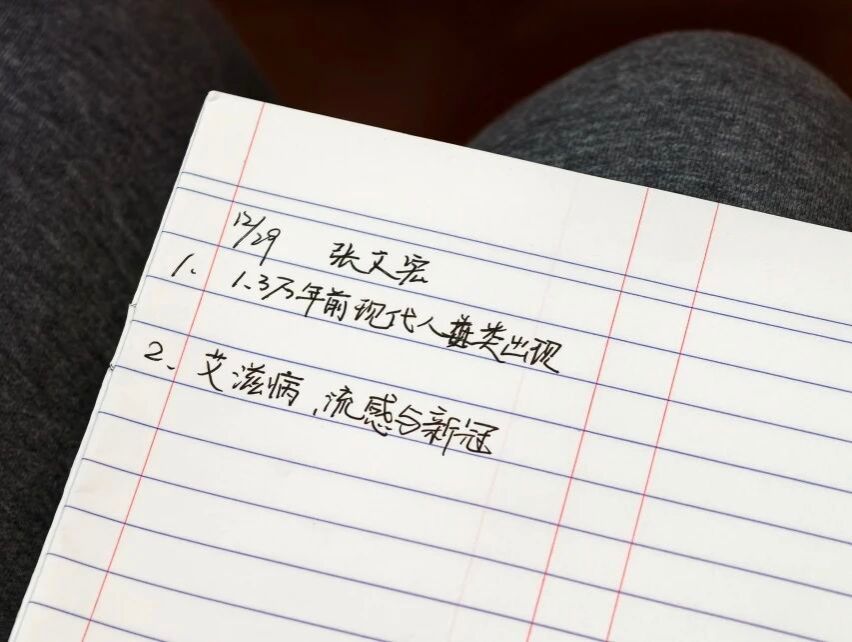 12/29 张文宏
1. 1.3万年前现代人类出现
2. 艾滋病,流感与新冠